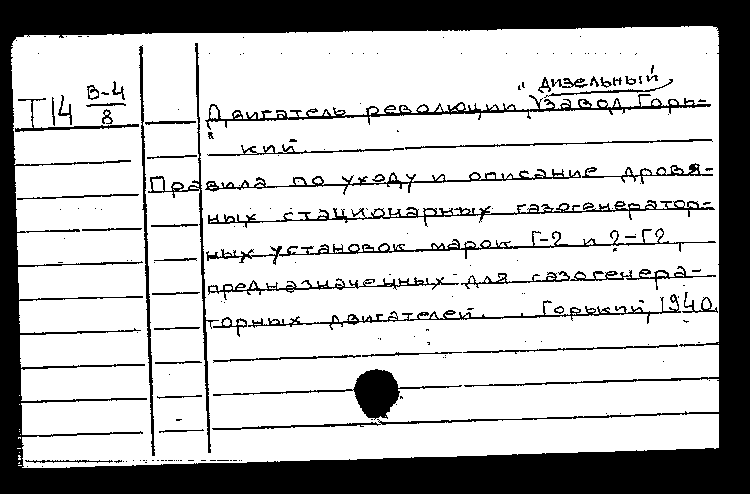 Т14 В-4/8
"Двигатель революции", дизельный завод, Горь-
кий
Правила по уходу и описание дровя-
ных стационарных газогенератор-
ных установок марок Г-2 и 2-Г2,
предназначенных для газогенера-
торных двигателей. Горький, 1940.